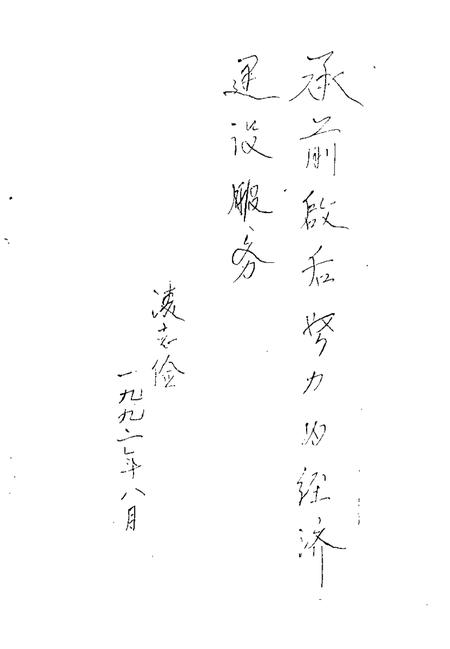 承前啟后努力为经济
建设服务
凌志俭
一九九二年八月